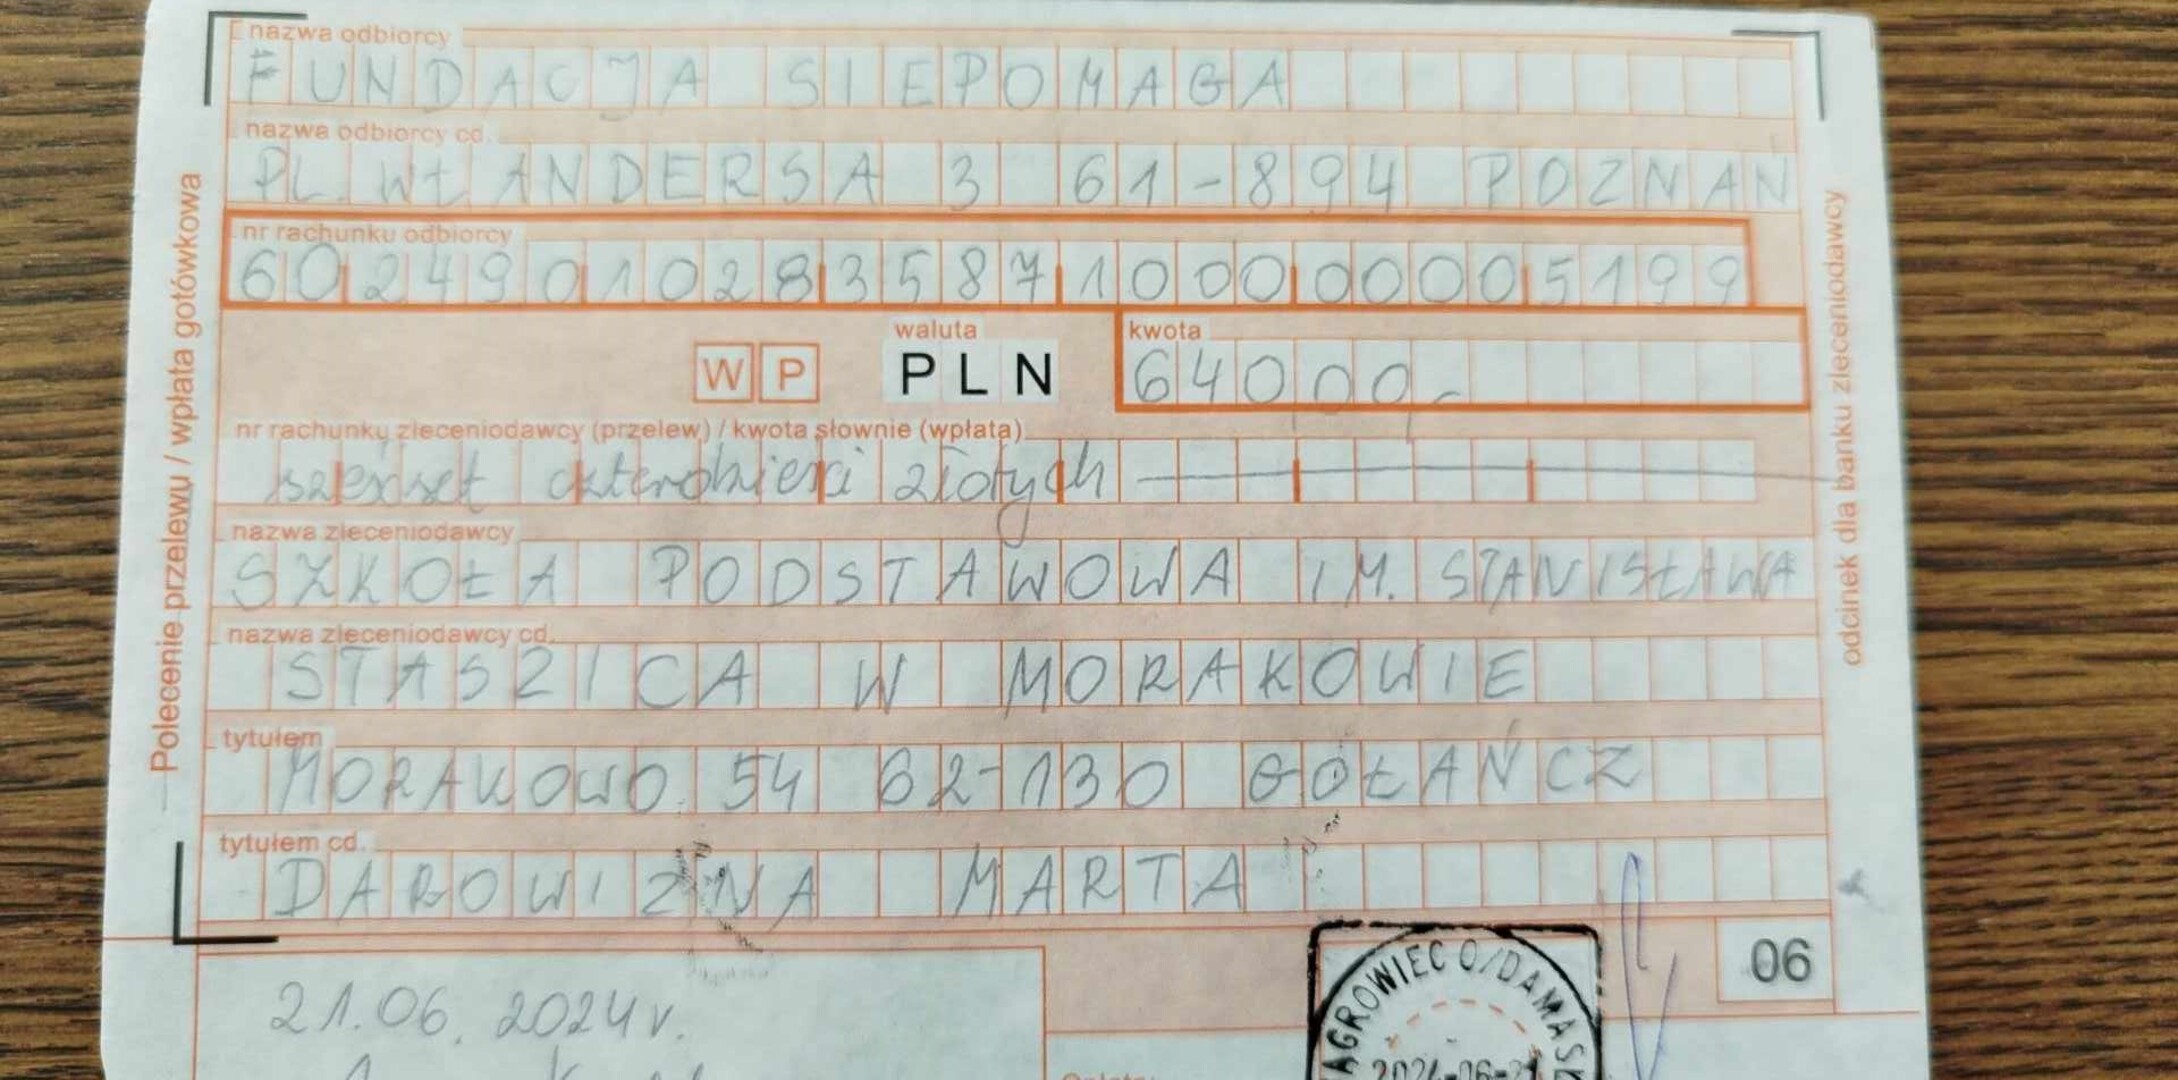 nazwa odbiorcy
FUNDACJA SIEPOMAGA
nazwa odbiorcy cd.
PL. WŁ ANDERSA 3 61-894 POZNAŃ
nr rachunku odbiorcy
60249010283587100000005199
W P
waluta
PLN
kwota
64000,-
nr rachunku zleceniodawcy (przelew) / kwota słownie (wpłata)
sześset czterdzieści złotych
nazwa zleceniodawcy
SZKOŁA PODSTAWOWA IM. STANISŁAWA
nazwa zleceniodawcy cd.
STASZICA W MORAKOWIE
tytułem
MORAKOWO 54 62-130 GOŁAŃCZ
tytułem cd.
DAROWIZNA MARTA
06
21.06.2024 r.
Polecenie przelewu / wpłata gotówkowa
odcinek dla banku zleceniodawcy
AGROWIEC O/DAMAS